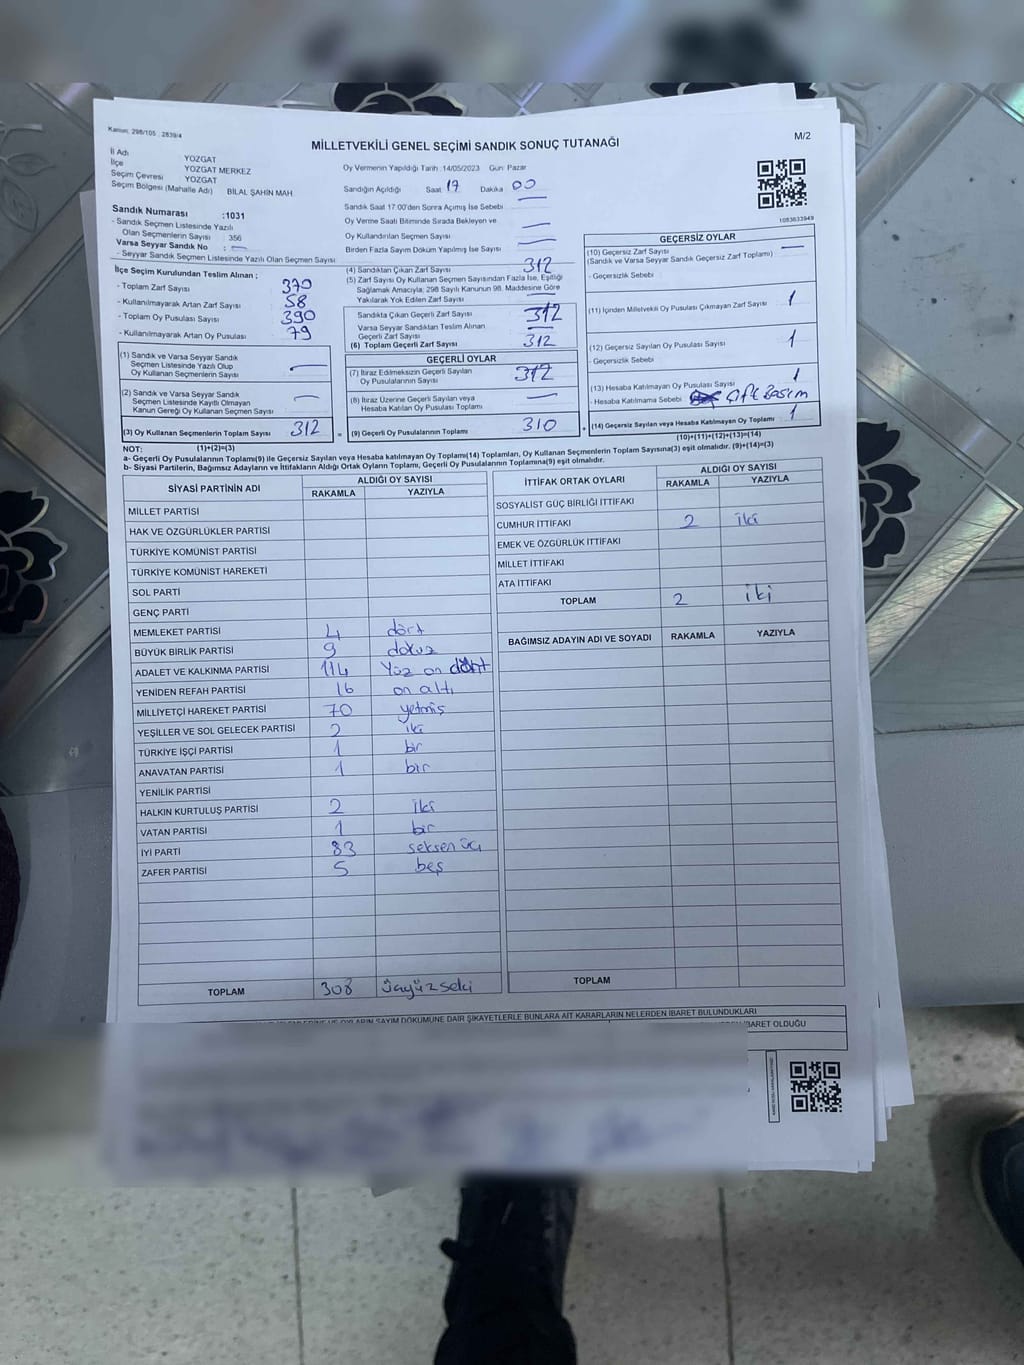 Kanun: 298/105 : 2839/4
MİLLETVEKİLİ GENEL SEÇİMİ SANDIK SONUÇ TUTANAĞI
M/2
İl Adı YOZGAT
İlçe YOZGAT MERKEZ
Seçim Çevresi YOZGAT
Seçim Bölgesi (Mahalle Adı) BİLAL ŞAHİN MAH.
Oy Vermenin Yapıldığı Tarih :14/05/2023 Gün: Pazar
Sandığın Açıldığı Saat 17 Dakika 00
Sandık Saat 17.00'den Sonra Açımış İse Sebebi
Oy Verme Saati Bitiminde Sırada Bekleyen ve
Oy Kullandırılan Seçmen Sayısı
Birden Fazla Sayım Döküm Yapılmış İse Sayısı
1083633949
Sandık Numarası :1031
- Sandık Seçmen Listesinde Yazılı
Olan Seçmenlerin Sayısı : 356
Varsa Seyyar Sandık No : —
- Seyyar Sandık Seçmen Listesinde Yazılı Olan Seçmen Sayısı
İlçe Seçim Kurulundan Teslim Alınan ;
- Toplam Zarf Sayısı 370
- Kullanılmayarak Artan Zarf Sayısı 58
- Toplam Oy Pusulası Sayısı 390
- Kullanılmayarak Artan Oy Pusulası 79
(1) Sandık ve Varsa Seyyar Sandık
Seçmen Listesinde Yazılı Olup
Oy Kullanan Seçmenlerin Sayısı —
(2) Sandık ve Varsa Seyyar Sandık
Seçmen Listesinde Kayıtlı Olmayan
Kanun Gereği Oy Kullanan Seçmen Sayısı —
(3) Oy Kullanan Seçmenlerin Toplam Sayısı 312
(1)+(2)=(3)
(4) Sandıktan Çıkan Zarf Sayısı 312
(5) Zarf Sayısı Oy Kullanan Seçmen Sayısından Fazla İse, Eşitliği
Sağlamak Amacıyla; 298 Sayılı Kanunun 98. Maddesine Göre
Yakılarak Yok Edilen Zarf Sayısı —
Sandıkta Çıkan Geçerli Zarf Sayısı 312
Varsa Seyyar Sandıktan Teslim Alınan
Geçerli Zarf Sayısı —
(6) Toplam Geçerli Zarf Sayısı 312
GEÇERLİ OYLAR
(7) İtiraz Edilmeksizin Geçerli Sayılan
Oy Pusulalarının Sayısı 312
(8) İtiraz Üzerine Geçerli Sayılan veya
Hesaba Katılan Oy Pusulası Toplamı —
= (9) Geçerli Oy Pusulalarının Toplamı 310
GEÇERSİZ OYLAR
(10) Geçersiz Zarf Sayısı —
(Sandık ve Varsa Seyyar Sandık Geçersiz Zarf Toplamı)
- Geçersizlik Sebebi
(11) İçinden Milletvekili Oy Pusulası Çıkmayan Zarf Sayısı 1
(12) Geçersiz Sayılan Oy Pusulası Sayısı 1
- Geçersizlik Sebebi
(13) Hesaba Katılmayan Oy Pusulası Sayısı 1
- Hesaba Katılmama Sebebi Çift Basım
+ (14) Geçersiz Sayılan veya Hesaba Katılmayan Oy Toplamı 1
(10)+(11)+(12)+(13)=(14)
NOT:
a- Geçerli Oy Pusulalarının Toplamı(9) ile Geçersiz Sayılan veya Hesaba katılmayan Oy Toplamı(14) Toplamları, Oy Kullanan Seçmenlerin Toplam Sayısına(3) eşit olmalıdır. (9)+(14)=(3)
b- Siyasi Partilerin, Bağımsız Adayların ve İttifakların Aldığı Ortak Oyların Toplamı, Geçerli Oy Pusulalarının Toplamına(9) eşit olmalıdır.
SİYASİ PARTİNİN ADI ALDIĞI OY SAYISI
RAKAMLA YAZIYLA
MİLLET PARTİSİ
HAK VE ÖZGÜRLÜKLER PARTİSİ
TÜRKİYE KOMÜNİST PARTİSİ
TÜRKİYE KOMÜNİST HAREKETİ
SOL PARTİ
GENÇ PARTİ
MEMLEKET PARTİSİ 4 dört
BÜYÜK BİRLİK PARTİSİ 9 dokuz
ADALET VE KALKINMA PARTİSİ 114 Yüz on dört
YENİDEN REFAH PARTİSİ 16 on altı
MİLLİYETÇİ HAREKET PARTİSİ 70 yetmiş
YEŞİLLER VE SOL GELECEK PARTİSİ 2 iki
TÜRKİYE İŞÇİ PARTİSİ 1 bir
ANAVATAN PARTİSİ 1 bir
YENİLİK PARTİSİ
HALKIN KURTULUŞ PARTİSİ 2 iki
VATAN PARTİSİ 1 bir
İYİ PARTİ 83 seksen üç
ZAFER PARTİSİ 5 beş
TOPLAM 308 üçyüz seki
İTTİFAK ORTAK OYLARI ALDIĞI OY SAYISI
RAKAMLA YAZIYLA
SOSYALİST GÜÇ BİRLİĞİ İTTİFAKI
CUMHUR İTTİFAKI 2 iki
EMEK VE ÖZGÜRLÜK İTTİFAKI
MİLLET İTTİFAKI
ATA İTTİFAKI
TOPLAM 2 iki
BAĞIMSIZ ADAYIN ADI VE SOYADI RAKAMLA YAZIYLA
TOPLAM
OYLARIN SAYIM DÖKÜMÜNE DAİR ŞİKAYETLERLE BUNLARA AİT KARARLARIN NELERDEN İBARET BULUNDUKLARI
İBARET OLDUĞU